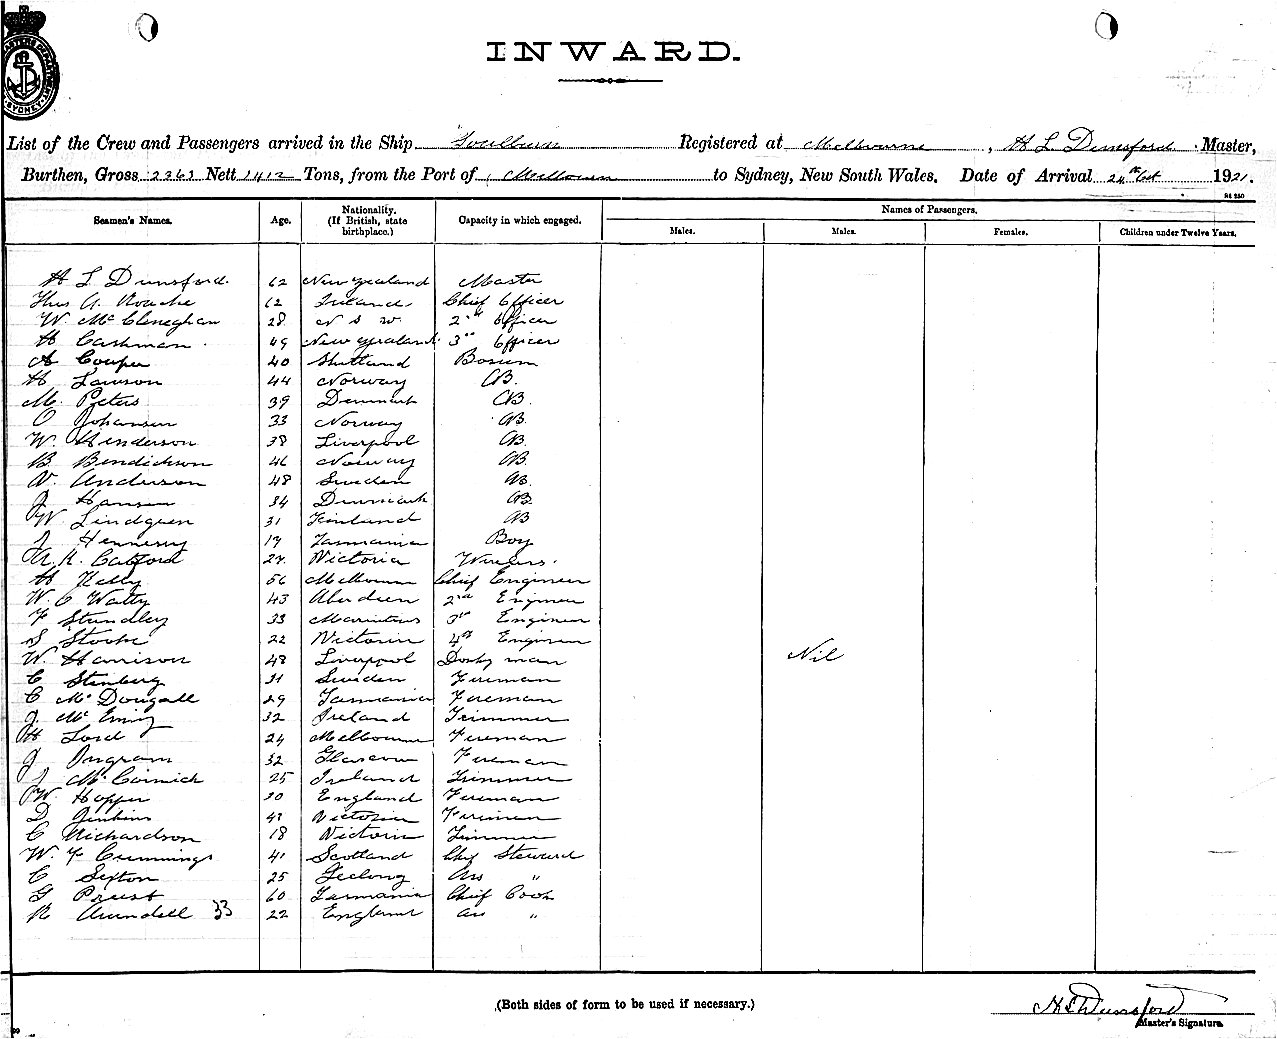 SYDNEY
INWARD.
List of the Crew and Passengers arrived in the Ship Goulburn Registered at Melbourne, H L Dunsford Master,
Burthen, Gross 2263 Nett 1412 Tons, from the Port of Melbourn to Sydney, New South Wales. Date of Arrival 24th Oct 1921.
Seamen's Names. Age. Nationality. (If British, state birthplace.) Capacity in which engaged. Names of Passengers.
Males. Males. Females. Children under Twelve Years.
H L Dunsford. 62 New Zealand Master
Thos A. Roache 62 Ireland Chief Officer
W. McCleneghan 28 N S W 2nd Officer
H Cashman 49 New Zealand 3rd Officer
A Couper 40 Shetland Bosun
H Lawson 44 Norway AB.
M. Peters 39 Denmark AB.
O Johansen 33 Norway AB.
W. Henderson 38 Liverpool AB.
B. Bendickson 46 Norway AB.
V. Anderson 48 Sweden AB.
J Hansen 34 Denmark AB.
W Lindgren 31 Finland AB
J Hennessy 17 Tasmania Boy
A. R. Catford 22 Victoria Wireless.
H Kelly 56 Melbourn Chief Engineer
W. C Watty 43 Aberdeen 2nd Engineer
F Strundley 33 Mauritius 3rd Engineer
S Stocke 22 Victoria 4th Engineer
W. Harrison 48 Liverpool Donkyman Nil
C Stenberg 31 Sweden Fireman
C McDougall 29 Tasmania Fireman
J. McEniry 32 Ireland Trimmer
H Lord 24 Melbourne Fireman
J Ingram 32 Glascow Fireman
J McCormick 25 Ireland Trimmer
W. Hopper 30 England Fireman
D Jenkins 43 Victoria Fireman
C Richardson 18 Victoria Trimmer
W. F Cummings 41 Scotland Chief Steward
C Sexton 25 Geelong Ass "
G Priest 60 Tasmania Chief Cook
R Arundell 33 22 England Ass "
(Both sides of form to be used if necessary.)
H L Dunsford
Master's Signature.